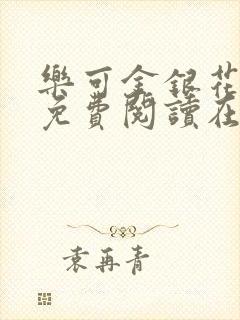 樂可金銀花
免費閱讀在
袁再青